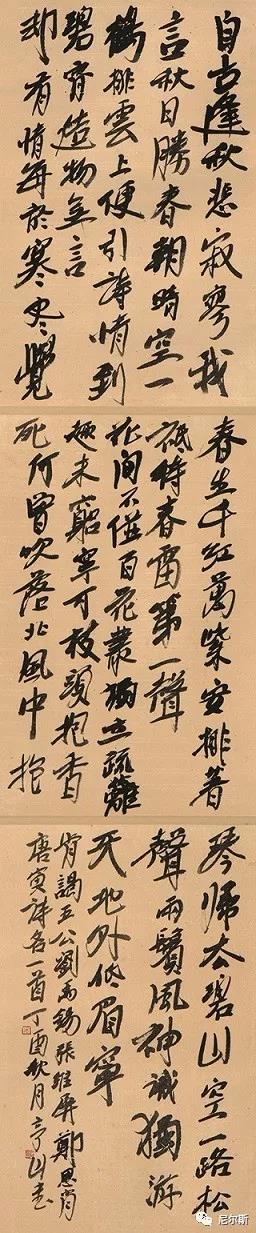 自古逢秋悲寂寥我
言秋日勝春朝晴空一
鶴排雲上便引詩情到
碧霄造物無言
却有情每於寒尽覺
春生千紅萬紫安排着
祇待春雷第一聲
花開不並百花叢獨立疏籬
趣未窮寧可枝頭抱香
死何曾吹落北風中抱
琴歸去碧山空一路松
聲兩鬢風神識獨游
天地外低眉寧
肯謁王公劉禹錫張維屏鄭思肖
唐寅詩各一首丁酉秋月
尼尔斯